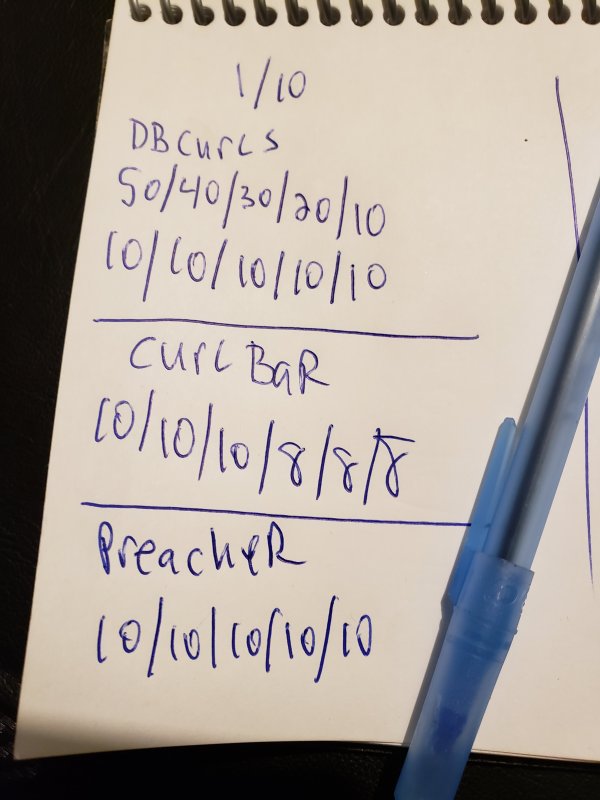 1/10
DBcurls
50/40/30/20/10
10/10/10/10/10
Curl BaR
10/10/10/8/8/8
PreacheR
10/10/10/10/10